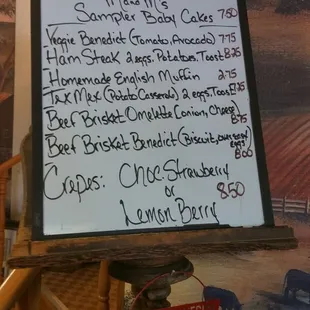 M and M's
Sampler Baby Cakes 7.50
Veggie Benedict (Tomato, Avocado) 7.75
Ham Steak 2 eggs. Potatoes. Toast 8.25
Homemade English Muffin 2.75
Tax Mex (Potato Casserole) 2 eggs. Toast
Beef Brisket Omelette (onion, Cheese) 8.75
Beef Brisket Benedict (Biscuit, over easy eggs) 8.00
Crepes: Choc. Strawberry
or 8.50
Lemon Berry